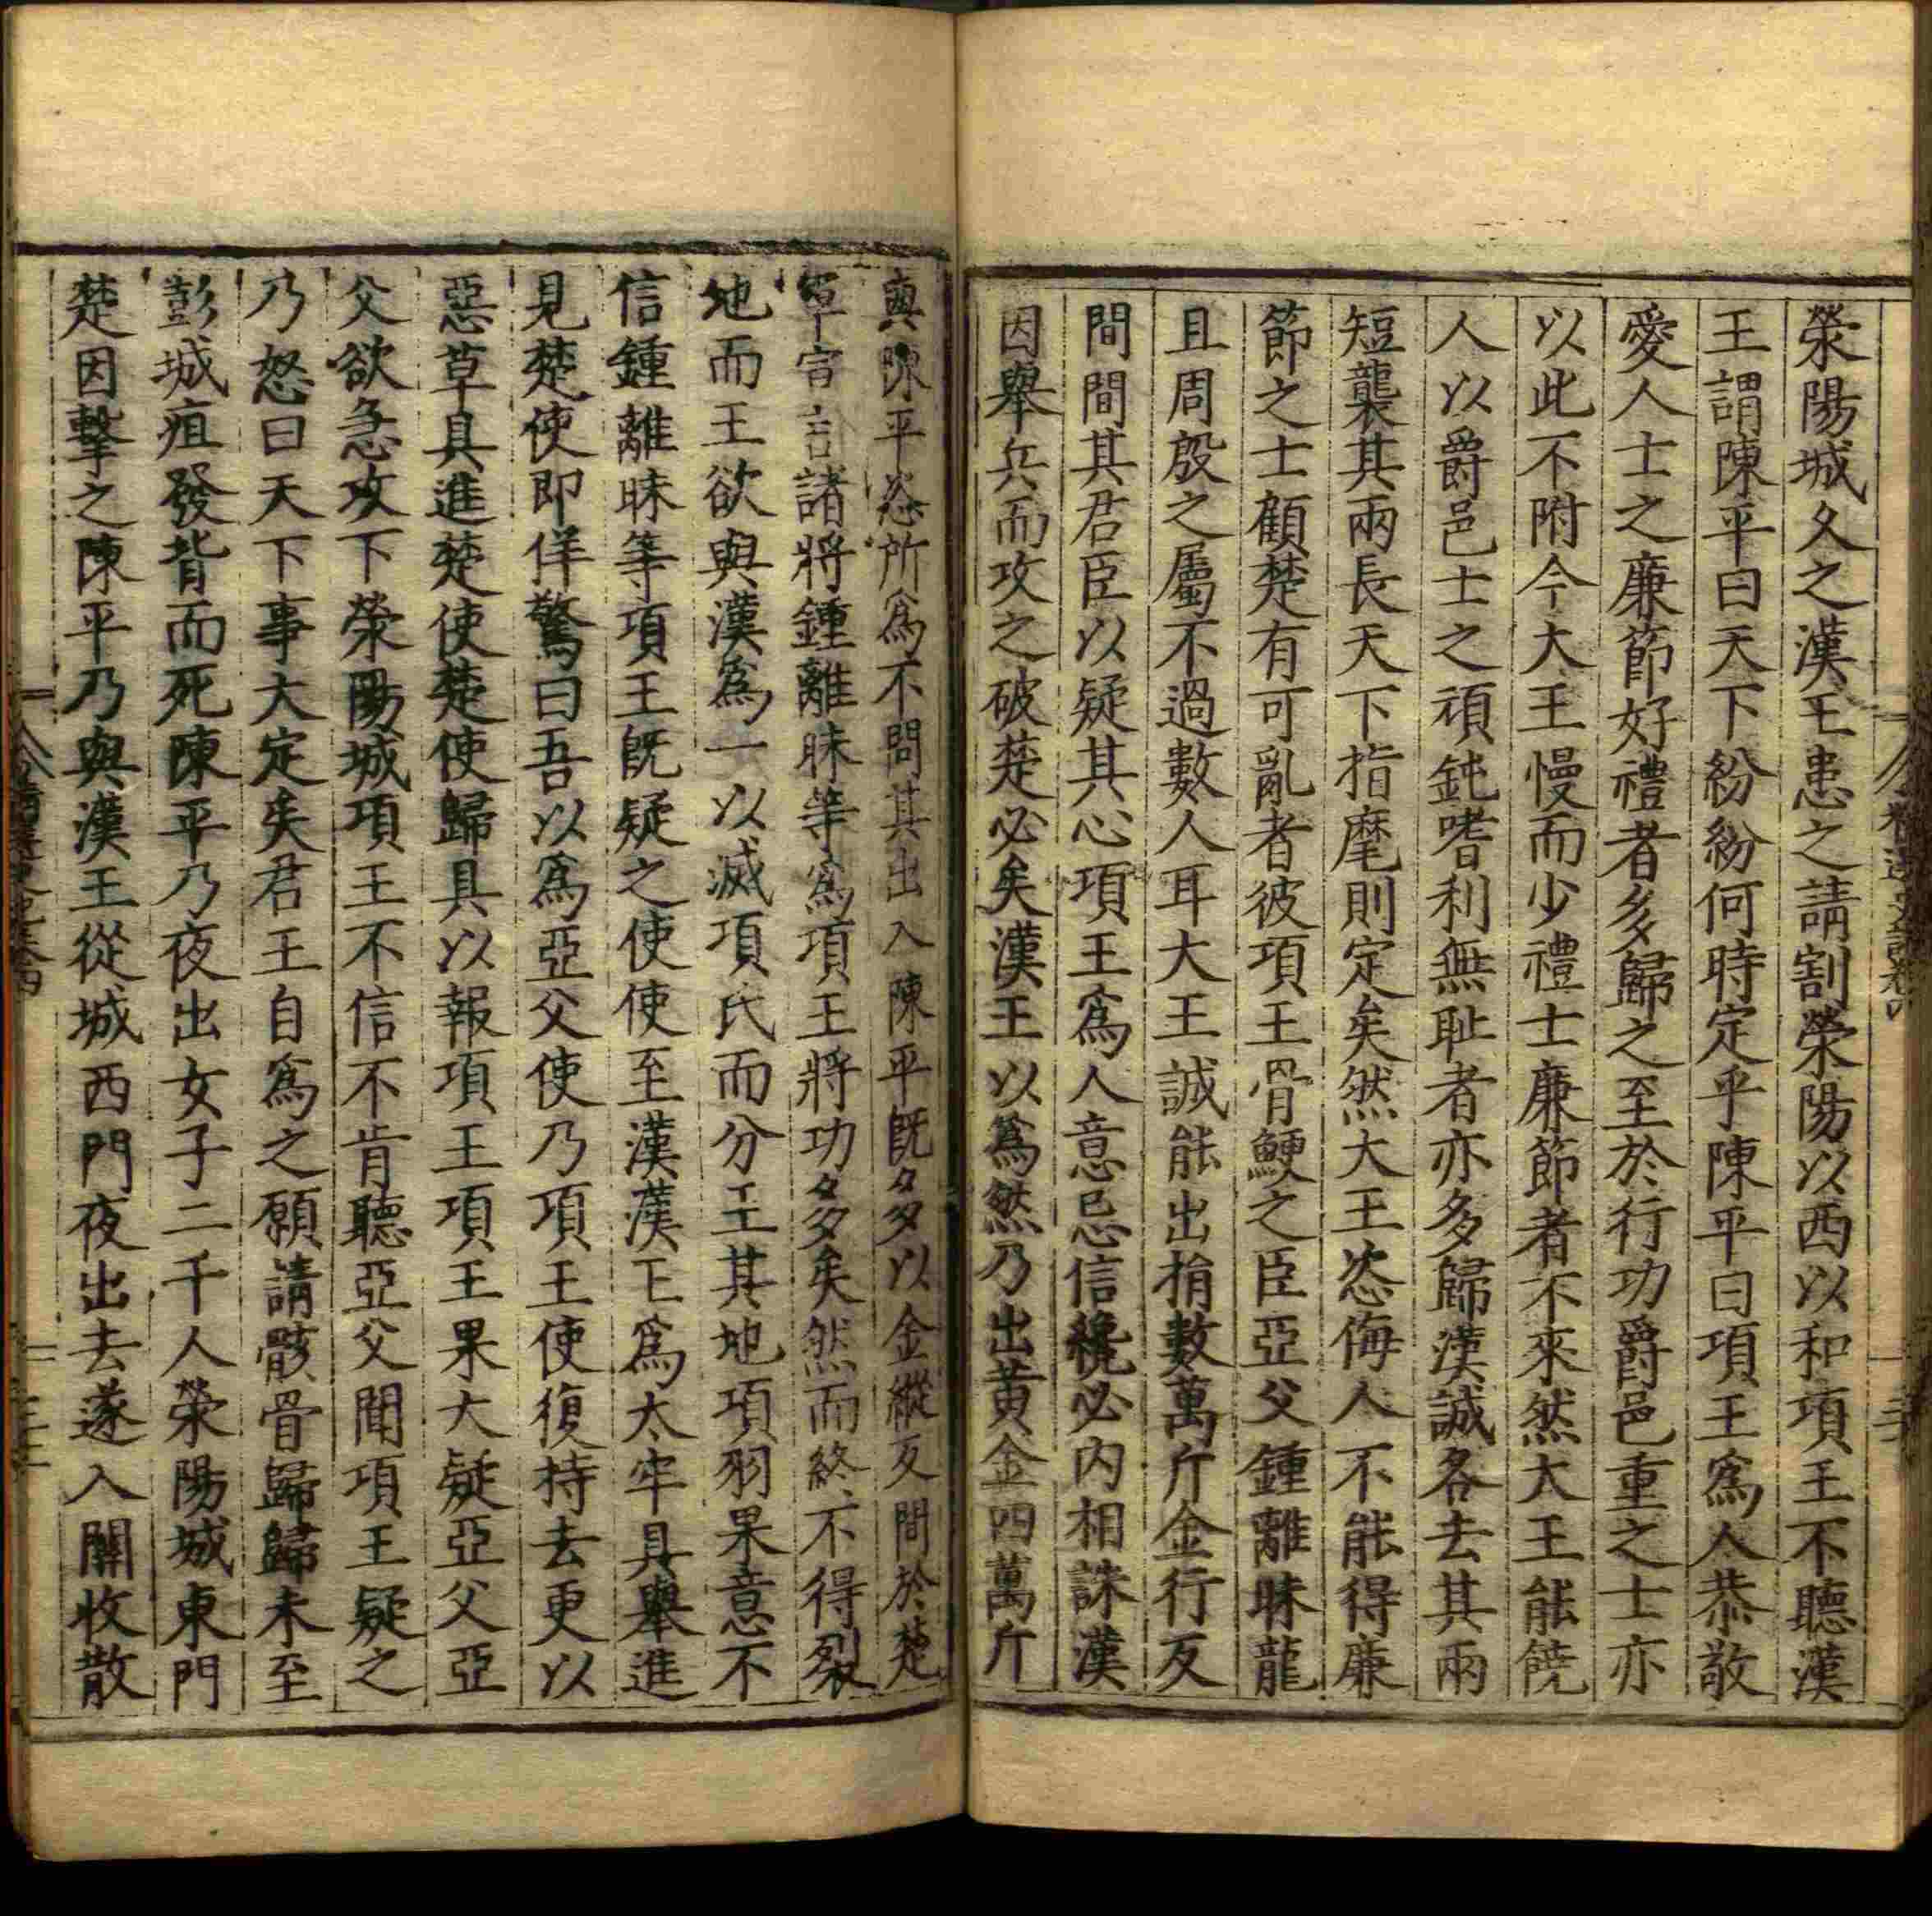 滎陽城久之漢王患之請割滎陽以西以和項王不聽漢
王謂陳平曰天下紛紛何時定乎陳平曰項王爲人恭敬
愛人士之廉節好禮者多歸之至於行功爵邑重之士亦
以此不附今大王慢而少禮士廉節者不來然大王能饒
人以爵邑士之頑鈍嗜利無耻者亦多歸漢誠各去其兩
短襲其兩長天下指麾則定矣然大王恣侮人不能得廉
節之士顧楚有可亂者彼項王骨鯁之臣亞父鍾離眛龍
且周殷之屬不過數人耳大王誠能出捐數萬斤金行反
間間其君臣以疑其心項王爲人意忌信讒必內相誅漢
因舉兵而攻之破楚必矣漢王以爲然乃出黃金四萬斤
與陳平恣所爲不問其出入陳平旣多以金縱反間於楚
軍宣言諸將鍾離眛等爲項王將功多矣然而終不得裂
地而王欲與漢爲一以滅項氏而分王其地項羽果意不
信鍾離眛等項王旣疑之使使至漢漢王爲太牢具舉進
見楚使卽佯驚曰吾以爲亞父使乃項王使復持去更以
惡草具進楚使楚使歸具以報項王項王果大疑亞父亞
父欲急攻下滎陽城項王不信不肯聽亞父聞項王疑之
乃怒曰天下事大定矣君王自爲之願請骸骨歸歸未至
彭城疽發背而死陳平乃夜出女子二千人滎陽城東門
楚因擊之陳平乃與漢王從城西門夜出去遂入關收散